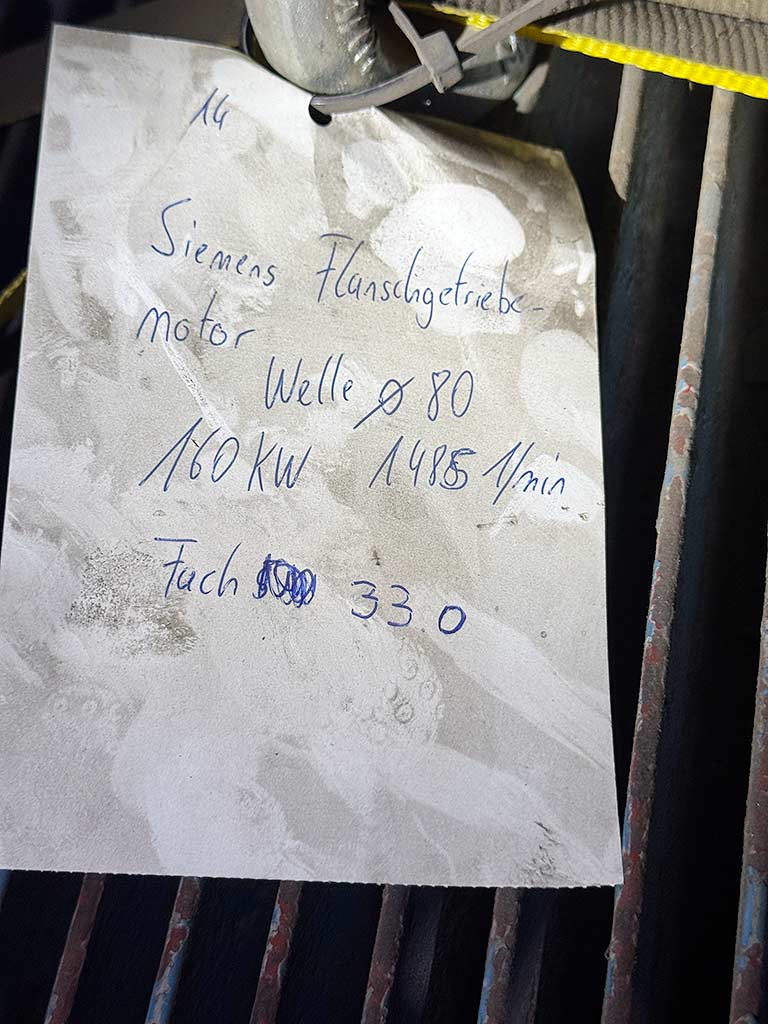 14
Siemens Flanschgetriebe-
motor
Welle ø 80
160 KW 1485 1/min
Fach 33 0